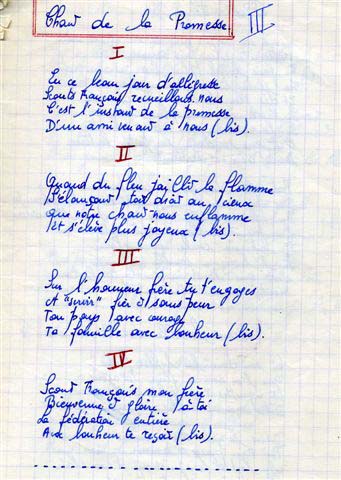 Chant de la Promesse III
I
En ce beau jour d'allégresse
Scouts Français recueillons nous
C'est l'instant de la promesse
D'un ami venant à nous (bis).
II
Quand du feu jaillit la flamme
S'élançant tout droit aux cieux
Que notre chant nous enflamme
Et s'élève plus joyeux (bis).
III
Sur l'honneur frère tu t'engages
A "servir" fier & sans peur
Ton pays avec courage
Ta famille avec bonheur (bis).
IV
Scout Français mon frère
Bienvenue & gloire à toi
La fédération entière
Avec bonheur te reçoit (bis).